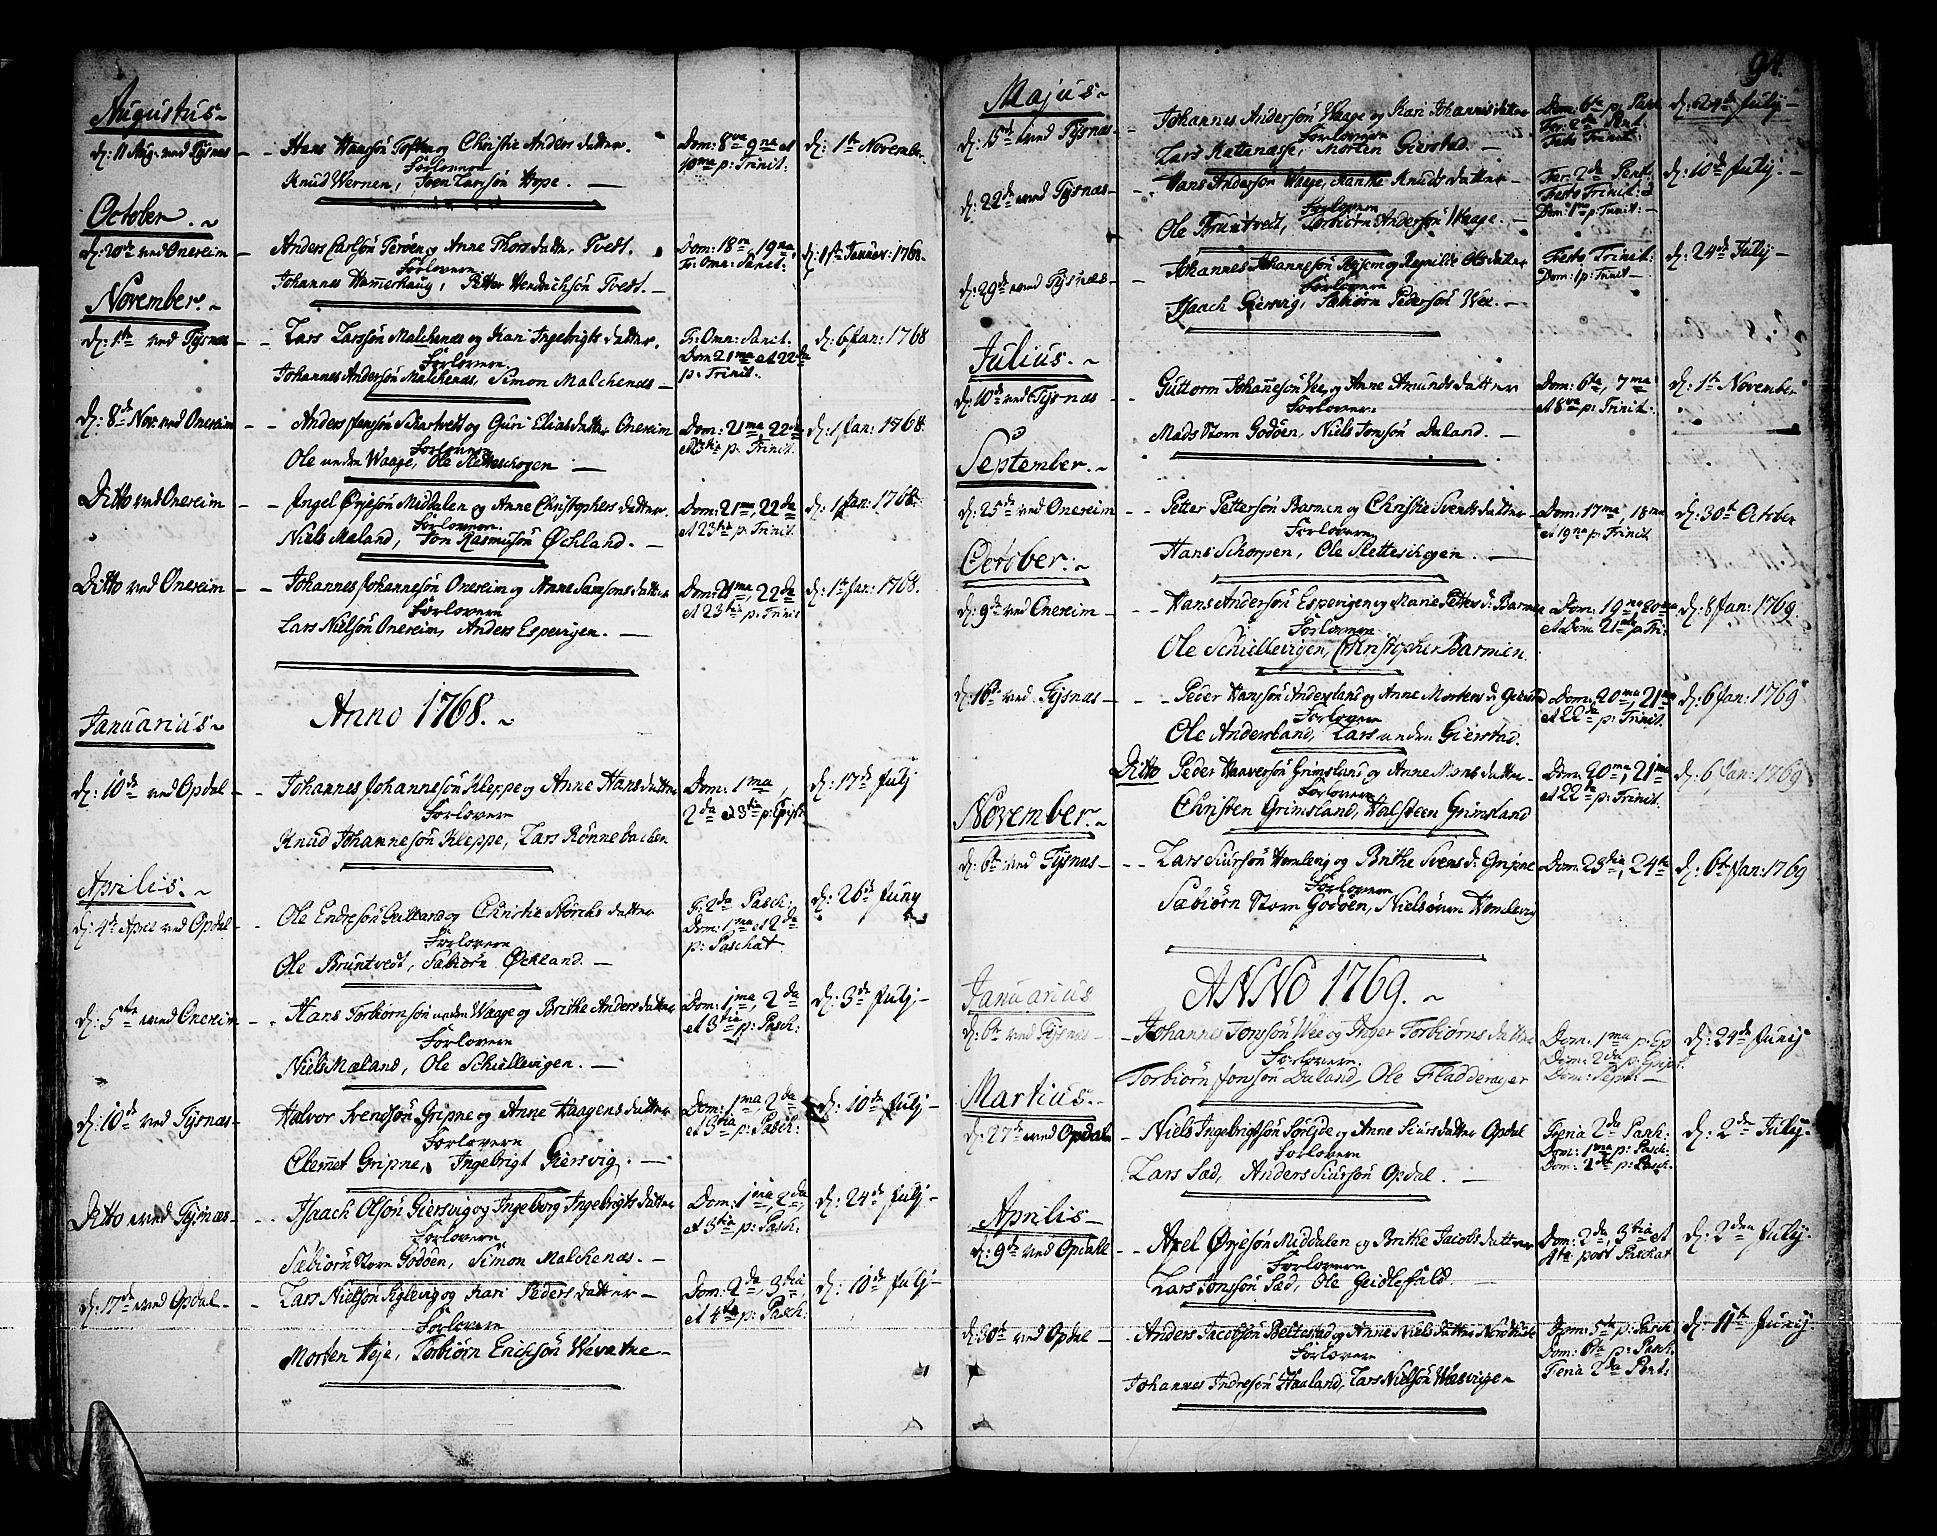 Augustus
d: 11 Aug. ved Tysnæs
Hans Hansøn Tofte og Christie Anders datter.
Forlovere
Knud Wernen, Joen Larsøn Hope.
Dom: 8va 9na et
10ma p: Trinit:
d: 1te November
October
d: 20de ved Onereim
Anders Carlsøn Terøen og Anne Thors datter Tvedt.
Forlovere
Johannes Hammerhaug, Petter Hendrichsøn Tvedt.
Dom: 18va, 19na
Fr: Omn: Sanct:
d: 1te Januer: 1768.
November
d: 1te ved Tysnæs
Lars Larssøn Malchenæs og Kari Ingebrigts datter.
Forlovere
Johannes Andersøn Malchenæs, Simon Malchenæs
Fr: Omn: Sanct.
Dom 21ma et 22da
p: Trinit:
d: 6 Jan: 1768
d: 8de Nov: ved Onereim
Anders Jensøn Schartvedt og Guri Elias datter Onereim
Forlovere
Ole unden Waage, Ole Sletteschogen
Dom: 21ma 22da
et 23tia p: Trinit.
d: 1 Jan: 1768.
Ditto ved Onereim
Ingel Ørjesøn Middalen og Anne Christophers datter.
Forlovere
Niels Maland, Jon Rasmusøn Øchland.
Dom: 21ma, 22da
et 23tia p: Trinit:
d: 1 Jan: 1768.
Ditto ved Onereim
Johannes Johannesøn Onereim og Anne Samsons datter
Forlovere
Lars Nielsøn Onereim, Anders Espevigen.
Dom: 21ma, 22da
et 23tia p: Trinit
d: 1te Jan: 1768.
Anno 1768.
Januarius
d: 10de ved Opdal
Johannes Johannesøn Kleppe og Anne Hans datter
Forlovere
Knud Johannesøn Kleppe, Lars Rønnebachen
Dom: 1ma,
2da et 3tia p: Epiph
d: 17de Julj
Aprilis
d: 4de April ved Opdal
Ole Endresøn Gulland og Christie Nørches datter
Forlovere
Ole Bruntvedt, Sæbiørn Øchland.
F: 2da Pasch:
Dom: 1ma et 2da
p: Paschat
d: 26de Juny
d: 5te ved Onereim
Hans Torbiørnsøn unden Waage og Brithe Anders datter
Forlovere
Niels Maland, Ole Schiellevigen.
Dom: 1ma, 2da
et 3tia p: Pasch:
d: 3de Julj
d: 10de ved Tysnæs
Halvor Svendsøn Gripne og Anne Haagens datter
Forlovere
Clemet Gripne, Ingebrigt Giersvig.
Dom: 1ma 2da
et 3tia p: Pasch:
d: 10de Julj
Ditto ved Tysnæs
Isaach Olsøn Giersvig og Ingeborg Ingebrigts datter
Forlovere
Sæbiørn Storn Godøen, Simon Malchenæs.
Dom: 1ma, 2da,
et 3tia p: Pasch:
d: 24de Julj
d: 17de ved Opdal
Lars Nielsøn Siglevig og Kari Peders datter
Forlovere
Morten Heje, Torbiørn Erichsøn Wevatne
Dom: 2da, 3tia,
et 4ta p: Pasch:
d: 10de Julj
94.
Majus
d: 15de ved Tysnæs
Johannes Andersøn Waage og Kari Johannis datter
Forlovere
Lars Katanæsse, Morten Gierstad.
Dom: 6ta p: Pasch
Fer: 2da Pent.
Festo Trinit:
d: 24de Julj
d: 22de ved Tysnæs
Hans Andersøn Waage, Marithe Knuds datter
Forlovere
Ole Bruntvedt, Torbiørn Andersøn Waage.
Fer: 2da Pent.
Festo Trinit: et
Dom: 1ma p: Trinit:
d: 10de Julj
d: 29de ved Tysnæs
Johannes Johannesøn og Regnilde Ols datter
Forlovere
Isaach Giersvig, Sæbiørn Pedersøn Wee.
Festo Trinit:
Dom: 1 p: Trinit
d: 24de Julj
Julius.
d: 10de ved Tysnæs
Guttorm Johannesøn Vee og Anne Amunds datter
Forlovere
Mads Storn Godøen, Niels Jonsøn Daland.
Dom: 6ta, 7ma
et 8va p: Trinit:
d: 1te November
September.
d: 25de ved Onereim
Petter Pettersøn Barmen og Christie Svends datter
Forlovere
Hans Schorpen, Ole Sletteschogen.
Dom: 17ma 18va
et 19na p: Trinit
d: 30te October
October:
d: 9de ved Onereim
Hans Andersøn Espevigen og Marie Petters d: Barmen
Forlovere
Ole Schiellevigen, Christopher Barmen.
Dom: 19na 20ma
et Dom: 21ma p: Tri:
d: 8 Jan: 1769.
d: 16de ved Tysnæs
Peder Hansøn Andersland og Anne Mortens d: Gierstad
Forlovere
Ole Andersland, Lars unden Gierstad.
Dom: 20ma, 21ma
et 22da p: Trinit.
d: 6 Jan: 1769
Ditto
Peder Haaversøn Grimsland og Anne Mons datter
Forlovere
Christen Grimsland, Halsteen Grimsland
Dom: 20ma, 21ma
et 22da p: Trinit.
d: 6 Jan: 1769
November.
d: 6te ved Tysnæs
Lars Siursøn Hemlevig og Brithe Svens d: Gripne
Forlovere
Sæbiørn Storn Godøen, Niels Hemlevig
Dom: 23tia, 24ta
d: 6te Jan: 1769
ANNO 1769.
Januarius
d: 6te ved Tysnæs
Johannes Jonssøn Wee og Inger Torbiørns datter
Forlovere
Torbiørn Jonsøn Daland, Ole Fladderager
Dom: 1ma p: Ep
Dom: 2da p: Epiph:
Dom: Sept:
d: 24de Junij
Martius.
d: 27de ved Opdal
Niels Ingebrigtsøn Sørlyde og Anne Siurs datter Opdal
Forlovere
Lars Sæd, Anders Siursøn Opdal.
Feria 2da Pasch:
Dom: 1ma p: Pasch:
Dom: 2da p: Pasch:
d: 2de Julij.
Aprilis
d: 9de ved Opdalle
Axel Ørjesøn Middalen og Brithe Jacobs datter
Forlovere
Lars Jonsøn Sæd, Ole Geidlefald.
Dom: 2da, 3tia et
4ta post Paschat
d: 2den Julij.
d: 30te ved Opdal
Anders Jacobsøn Beltestad og Anne Niels datter Nordhuse
Forlovere
Johannes Indresøn Haaland, Lars Nielsøn Wæsvige
Dom: 5ta p: Pasch
Dom: 6ta p: Pasch:
Feria 2da Pent:
d: 11te Junij.